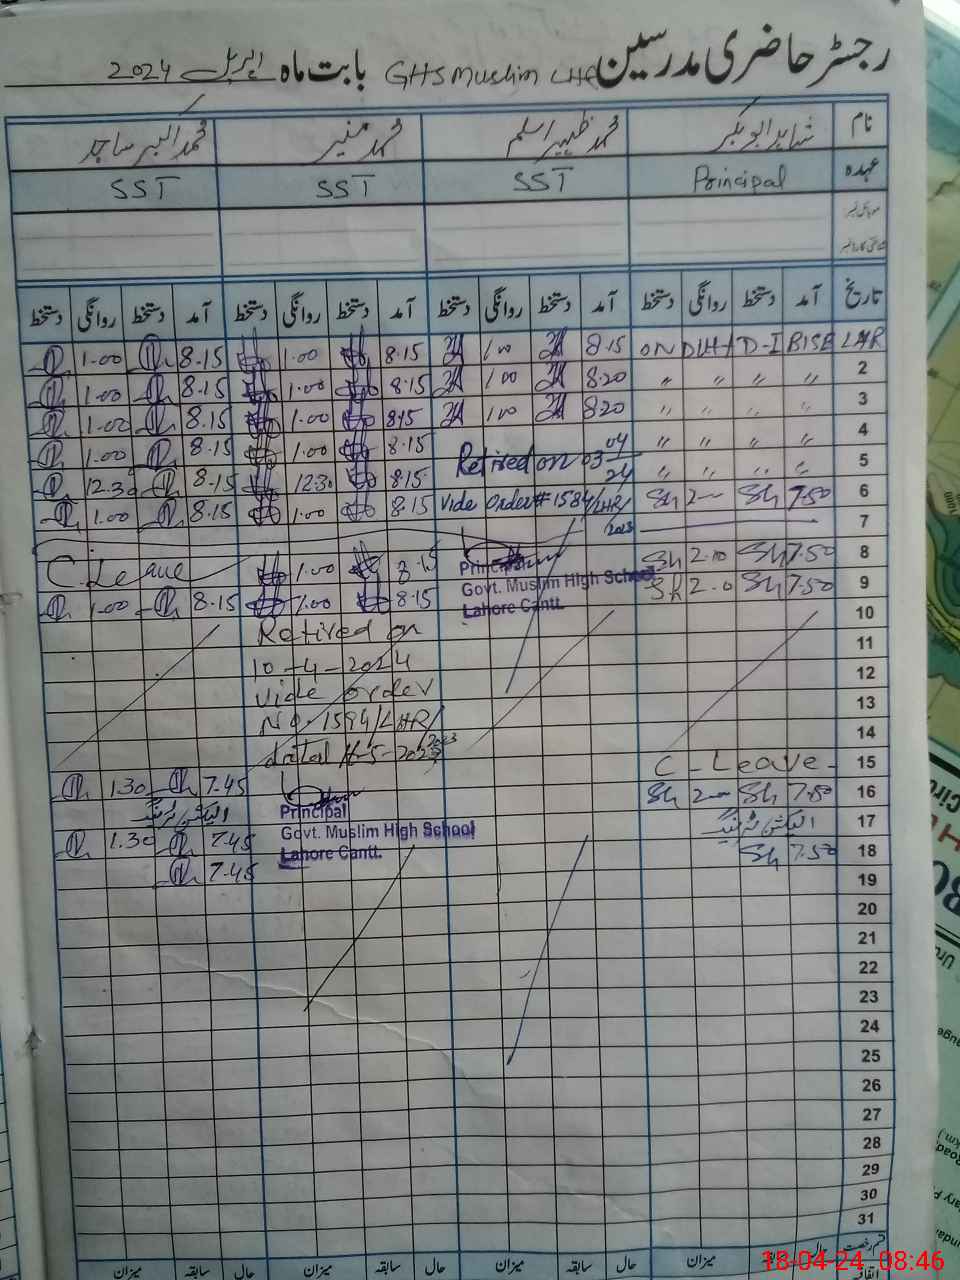 رجسٹر حاضری مدرسین GHS Muslim LHR بابت ماہ اپریل 2024
نام شاہد ابوبکر محمد ظہیر اسلم محمد منیر محمد اکبر ساجد
عہدہ Principal SST SST SST
موبائل نمبر
شناختی کارڈ نمبر
تاریخ آمد دستخط روانگی دستخط آمد دستخط روانگی دستخط آمد دستخط روانگی دستخط آمد دستخط روانگی دستخط
1.00 8.15 1.00 8.15 1 00 8.15 ON DUTY AD-I BISE LHR
1.00 8.15 1.00 8.15 1 00 8.20 " " " " 2
1.00 8.15 1.00 8.15 1 00 8.20 " " " " 3
1.00 8.15 1.00 8.15 " " " " 4
12.30 8.15 12.30 8.15 Retired on 03 04/24 " " " " 5
1.00 8.15 1.00 8.15 vide order # 1584/LHR/2023 Sh 2-00 Sh 7.50 6
7
C. Leave 1.00 8.15 Sh 2.00 Sh 7.50 8
Principal
Govt. Muslim High School
Lahore Cantt.
1.00 8.15 1.00 8.15 Sh 2.0 Sh 7.50 9
Retired on 10
10-4-2024 11
vide order 12
No. 1594/LHR/ 13
14
C - Leave - 15
1.30 7.45 Sh 2-00 Sh 7.50 16
الیکشن ٹریننگ الیکشن ٹریننگ 17
Principal
Govt. Muslim High School
Lahore Cantt.
1.30 7.45 Sh 7.50 18
7.45 19
20
21
22
23
24
25
26
27
28
29
30
31
قسم رخصت حال سابقہ میزان حال سابقہ میزان حال سابقہ میزان حال سابقہ میزان
اتفاقیہ
18-04-24 08:46